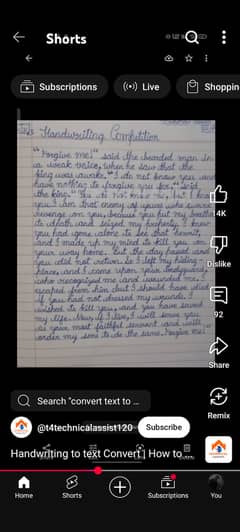 Shorts
Subscriptions
Live
Shoppin
Handwriting Competition
"Forgive me!" said the bearded man in
a weak voice, when he saw that the
king was awake. "I do not know you and
have nothing to forgive you for," said
the king. "You do not know me, but I know
you. I am that enemy of yours who swore
revenge on you, because you put my brother
to death and seized my property. I knew
you had gone alone to see that hermit,
and I made up my mind to kill you on
your way home. But the day passed and
you did not return. So I left my hiding
place, and I came upon your bodyguard,
who recognized me and wounded me. I
escaped from him but I should have died
if you had not dressed my wounds. I
wished to kill you, and you have saved
my life. Now, if I live, I will serve you
as your most faithful servant and will
order my sons to do the same. Forgive me!"
Dislike
92
Share
Remix
Search "convert text to ...
@t4technicalassist120
Subscribe
Handwriting to text Convert | How to
Home
Shorts
Subscriptions
You